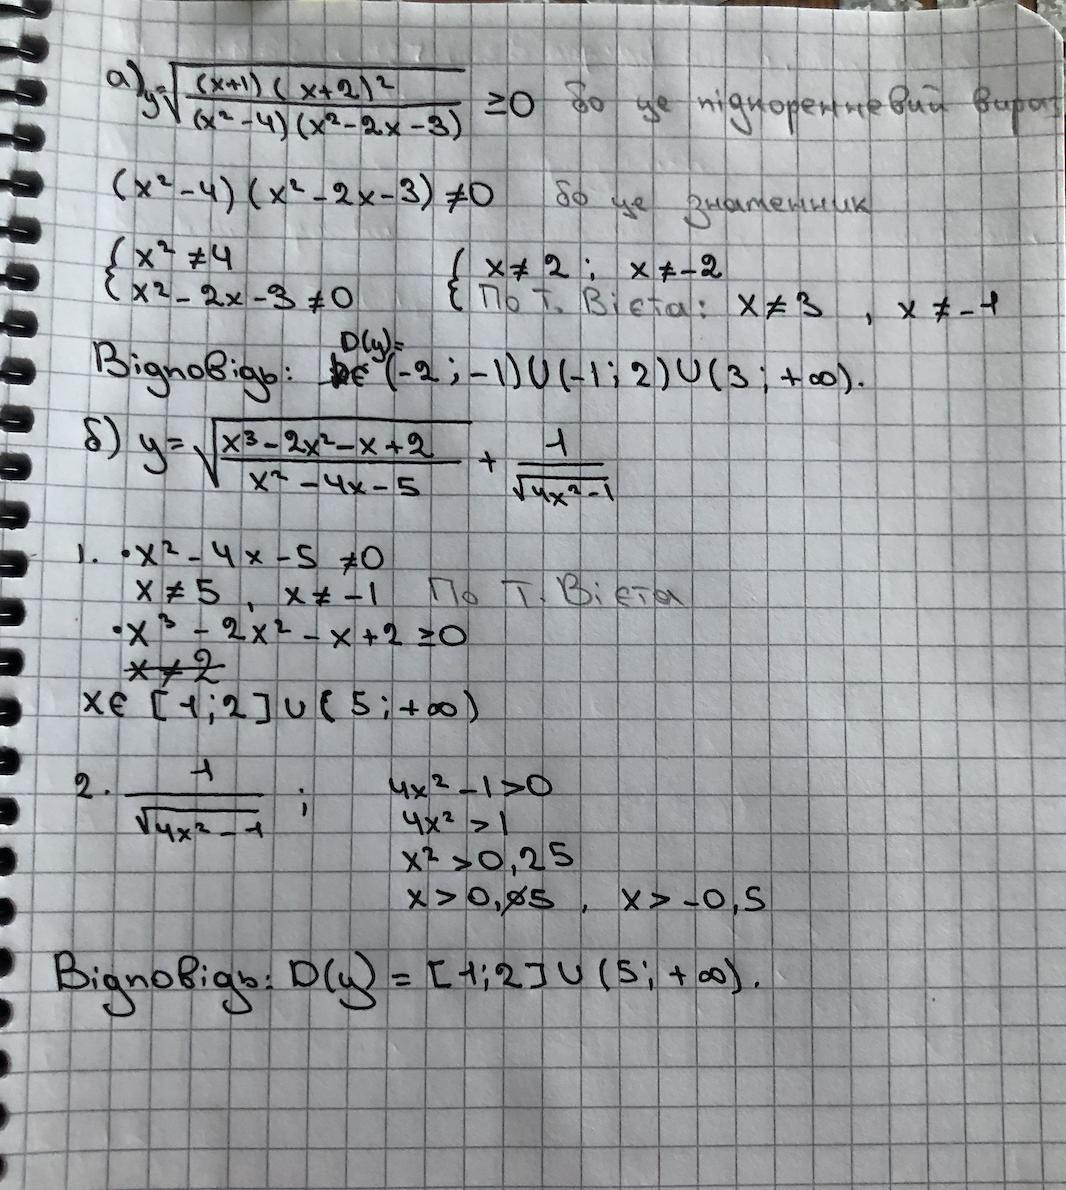 а) y=√((x+1)(x+2)²/((x²-4)(x²-2x-3))) ≥0 бо це підкореневий вираз
(x²-4)(x²-2x-3)≠0 бо це знаменник
{x²≠4 {x≠2; x≠-2
{x²-2x-3≠0 {По т. Вієта: x≠3, x≠-1
Відповідь: D(y)= (-2;-1)∪(-1;2)∪(3;+∞).
б) y=√((x³-2x²-x+2)/(x²-4x-5)) + 1/√(4x²-1)
1. •x²-4x-5≠0
x≠5, x≠-1 По т. Вієта
•x³-2x²-x+2≥0
x≠2
x∈[1;2]∪(5;+∞)
2. 1/√(4x²-1) ; 4x²-1>0
4x²>1
x²>0,25
x>0,5, x>-0,5
Відповідь: D(y)=[1;2]∪(5;+∞).